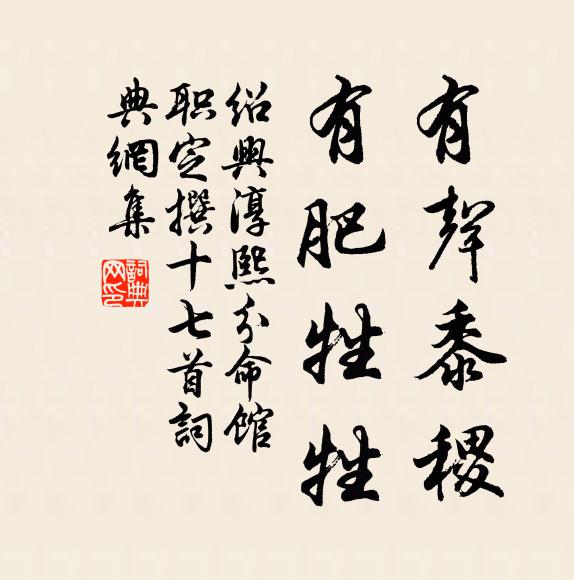 有聲黍稷
有肥牲牲
紹興淳熙分命館
职定撰十七首詞
典網集
詞典網印